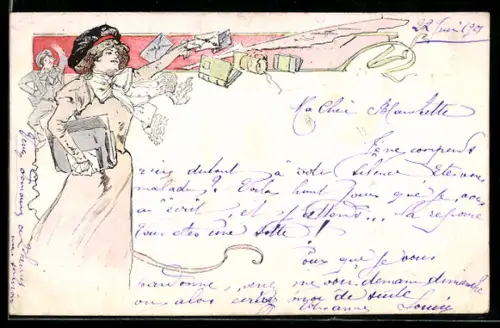 22 Juin 1901
Ma Chère Blanchette
Je ne comprends
rien du tout à votre silence Etes vous
malade? Voila huit jours que je vous
ai écrit, et j'attends... la reponse
Vous êtes une sotte!
Pour que je vous
pardonne, venez me voir demain dimanche
ou alors écrivez moi de suite
Louise